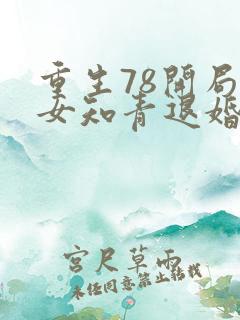 重生78開局
女知青退婚
宫尺草雨
未经同意禁止转载